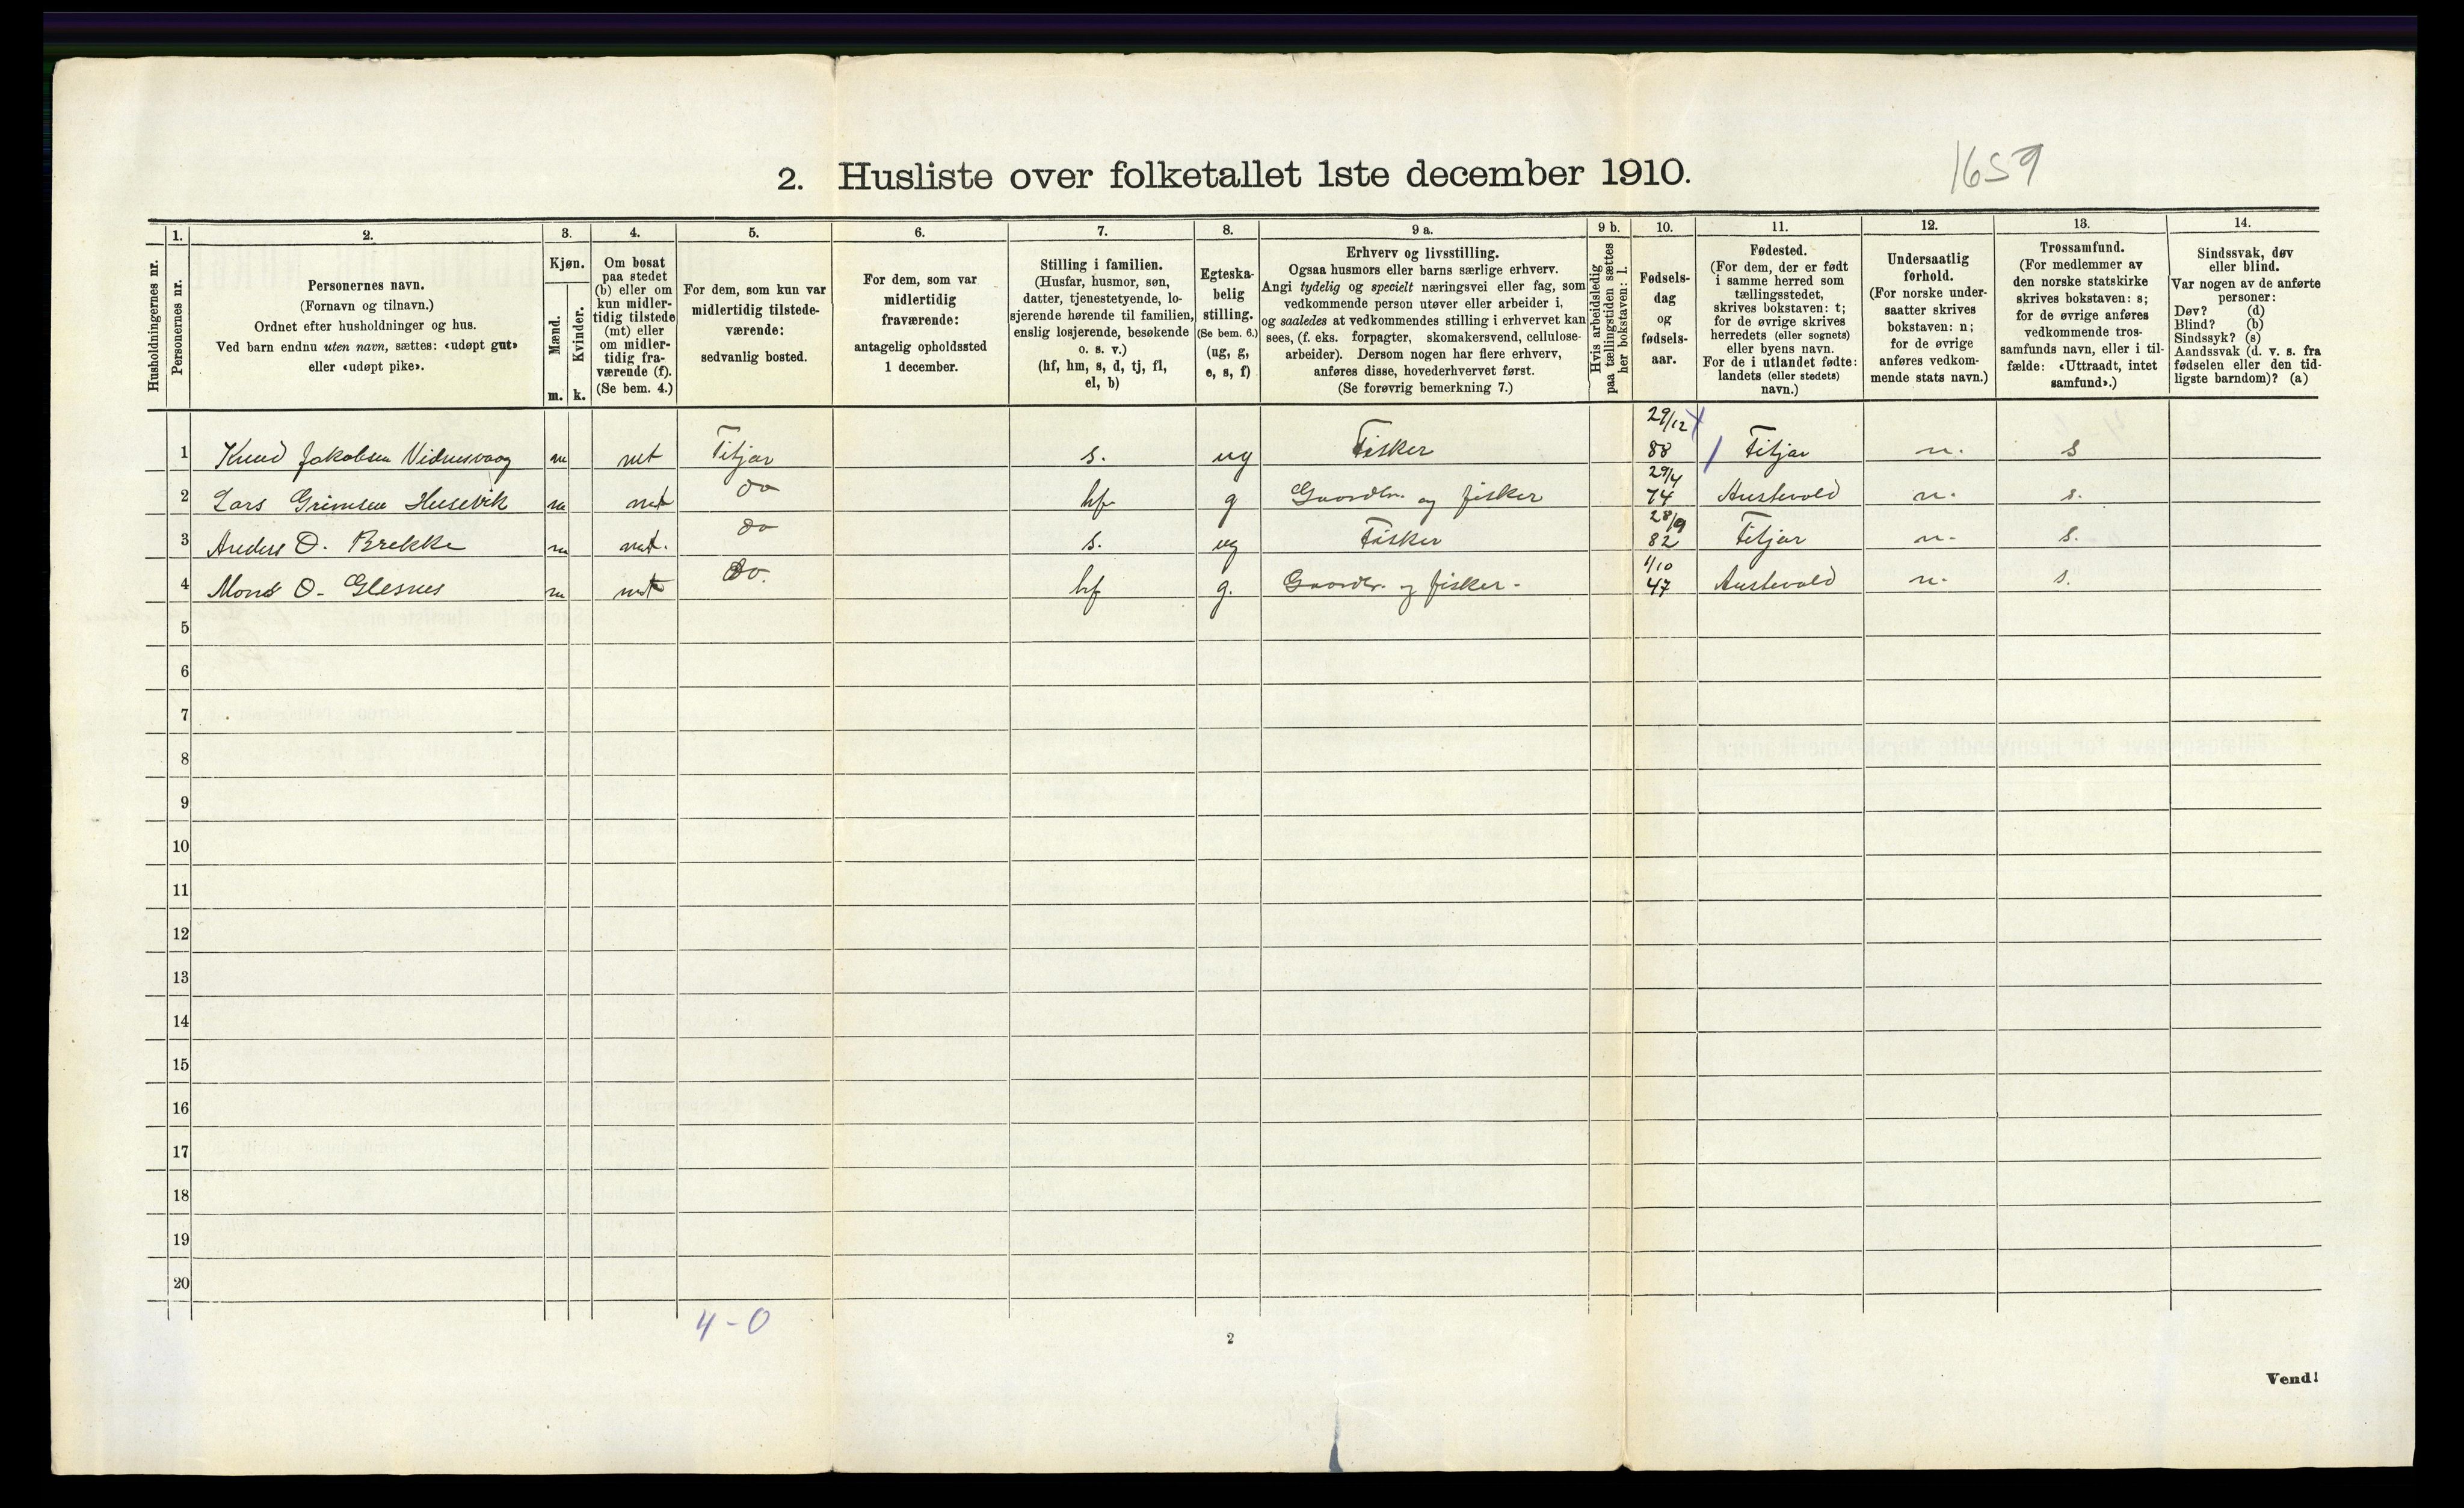 1659
2. Husliste over folketallet 1ste december 1910.
Husholdningernes nr.
1. Personernes nr.
2. Personernes navn.
(Fornavn og tilnavn.)
Ordnet efter husholdninger og hus.
Ved barn endnu uten navn, sættes: «udøpt gut»
eller «udøpt pike».
3. Kjøn.
Mænd. m.
Kvinder. k.
4. Om bosat
paa stedet
(b) eller om
kun midler-
tidig tilstede
(mt) eller
om midler-
tidig fra-
værende (f).
(Se bem. 4.)
5. For dem, som kun var
midlertidig tilstede-
værende:
sedvanlig bosted.
6. For dem, som var
midlertidig
fraværende:
antagelig opholdssted
1 december.
7. Stilling i familien.
(Husfar, husmor, søn,
datter, tjenestetyende, lo-
sjerende hørende til familien,
enslig losjerende, besøkende
o. s. v.)
(hf, hm, s, d, tj, fl,
el, b)
8. Egteska-
belig
stilling.
(Se bem. 6.)
(ug, g,
e, s, f)
9 a. Erhverv og livsstilling.
Ogsaa husmors eller barns særlige erhverv.
Angi tydelig og specielt næringsvei eller fag, som
vedkommende person utøver eller arbeider i,
og saaledes at vedkommendes stilling i erhvervet kan
sees, (f. eks. forpagter, skomakersvend, cellulose-
arbeider). Dersom nogen har flere erhverv,
anføres disse, hovederhvervet først.
(Se forøvrig bemerkning 7.)
9 b. Hvis arbeidsledig
paa tællingstiden sættes
her bokstaven: l.
10. Fødsels-
dag
og
fødsels-
aar.
11. Fødested.
(For dem, der er født
i samme herred som
tællingsstedet,
skrives bokstaven: t;
for de øvrige skrives
herredets (eller sognets)
eller byens navn.
For de i utlandet fødte:
landets (eller stedets)
navn.)
12. Undersaatlig
forhold.
(For norske under-
saatter skrives
bokstaven: n;
for de øvrige
anføres vedkom-
mende stats navn.)
13. Trossamfund.
(For medlemmer av
den norske statskirke
skrives bokstaven: s;
for de øvrige anføres
vedkommende tros-
samfunds navn, eller i til-
fælde: «Uttraadt, intet
samfund».)
14. Sindssvak, døv
eller blind.
Var nogen av de anførte
personer:
Døv? (d)
Blind? (b)
Sindssyk? (s)
Aandssvak (d. v. s. fra
fødselen eller den tid-
ligste barndom)? (a)
1 Knud Jakobsen m mt Fitjar s. ug Fisker 29/12 88 Fitjar n. s
2 Lars Grimsen Husevik m mt do hf g Gaardbr. og fisker 29/4 74 Austevold n. s.
3 Anders O. Brekke m mt. do s. ug Fisker 28/9 82 Fitjar n. s.
4 Mons O. Glesnes m mt do. hf g. Gaardbr. og fisker - 1/10 47 Austevold n. s.
5
6
7
8
9
10
11
12
13
14
15
16
17
18
19
20
4 - 0
2
Vend!